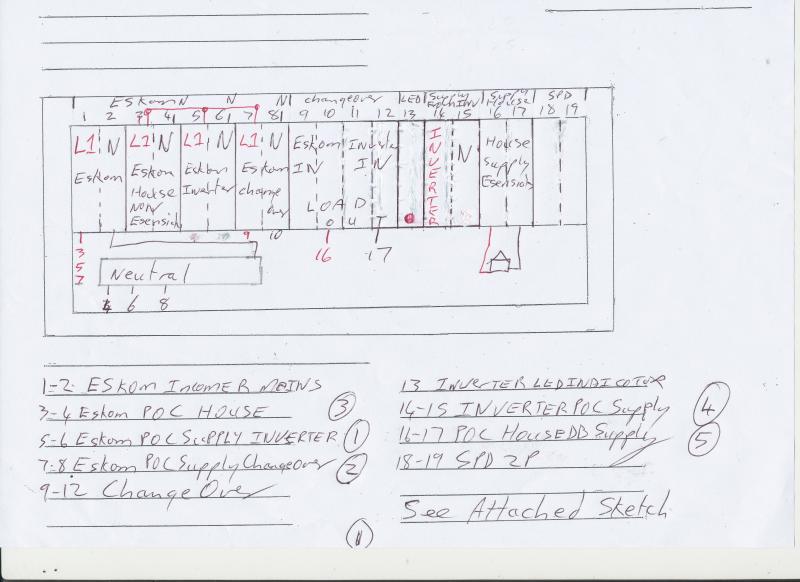 Eskom N N N changeover LED Supply INV Supply House SPD
1 2 3 4 5 6 7 8 9 10 11 12 13 14 15 16 17 18 19
L1 N L1 N L1 N L1 N Eskom Inverter INVERTER N House
Eskom Eskom Eskom Eskom IN IN Supply
House Inverter change Esensials
NON over
Esensials LOAD
OUT
1 9 10 16 17
3
5
7
Neutral
4 6 8
1-2. ESKOM INCOMER MAINS
3-4 Eskom POC HOUSE 3
5-6 Eskom POC SUPPLY INVERTER 1
7-8 Eskom POC Supply ChangeOver 2
9-12 Change Over
1
13 INVERTER LED INDICATOR
14-15 INVERTER POC Supply 4
16-17 POC House DB Supply 5
18-19 SPD 2P
See Attached Sketch